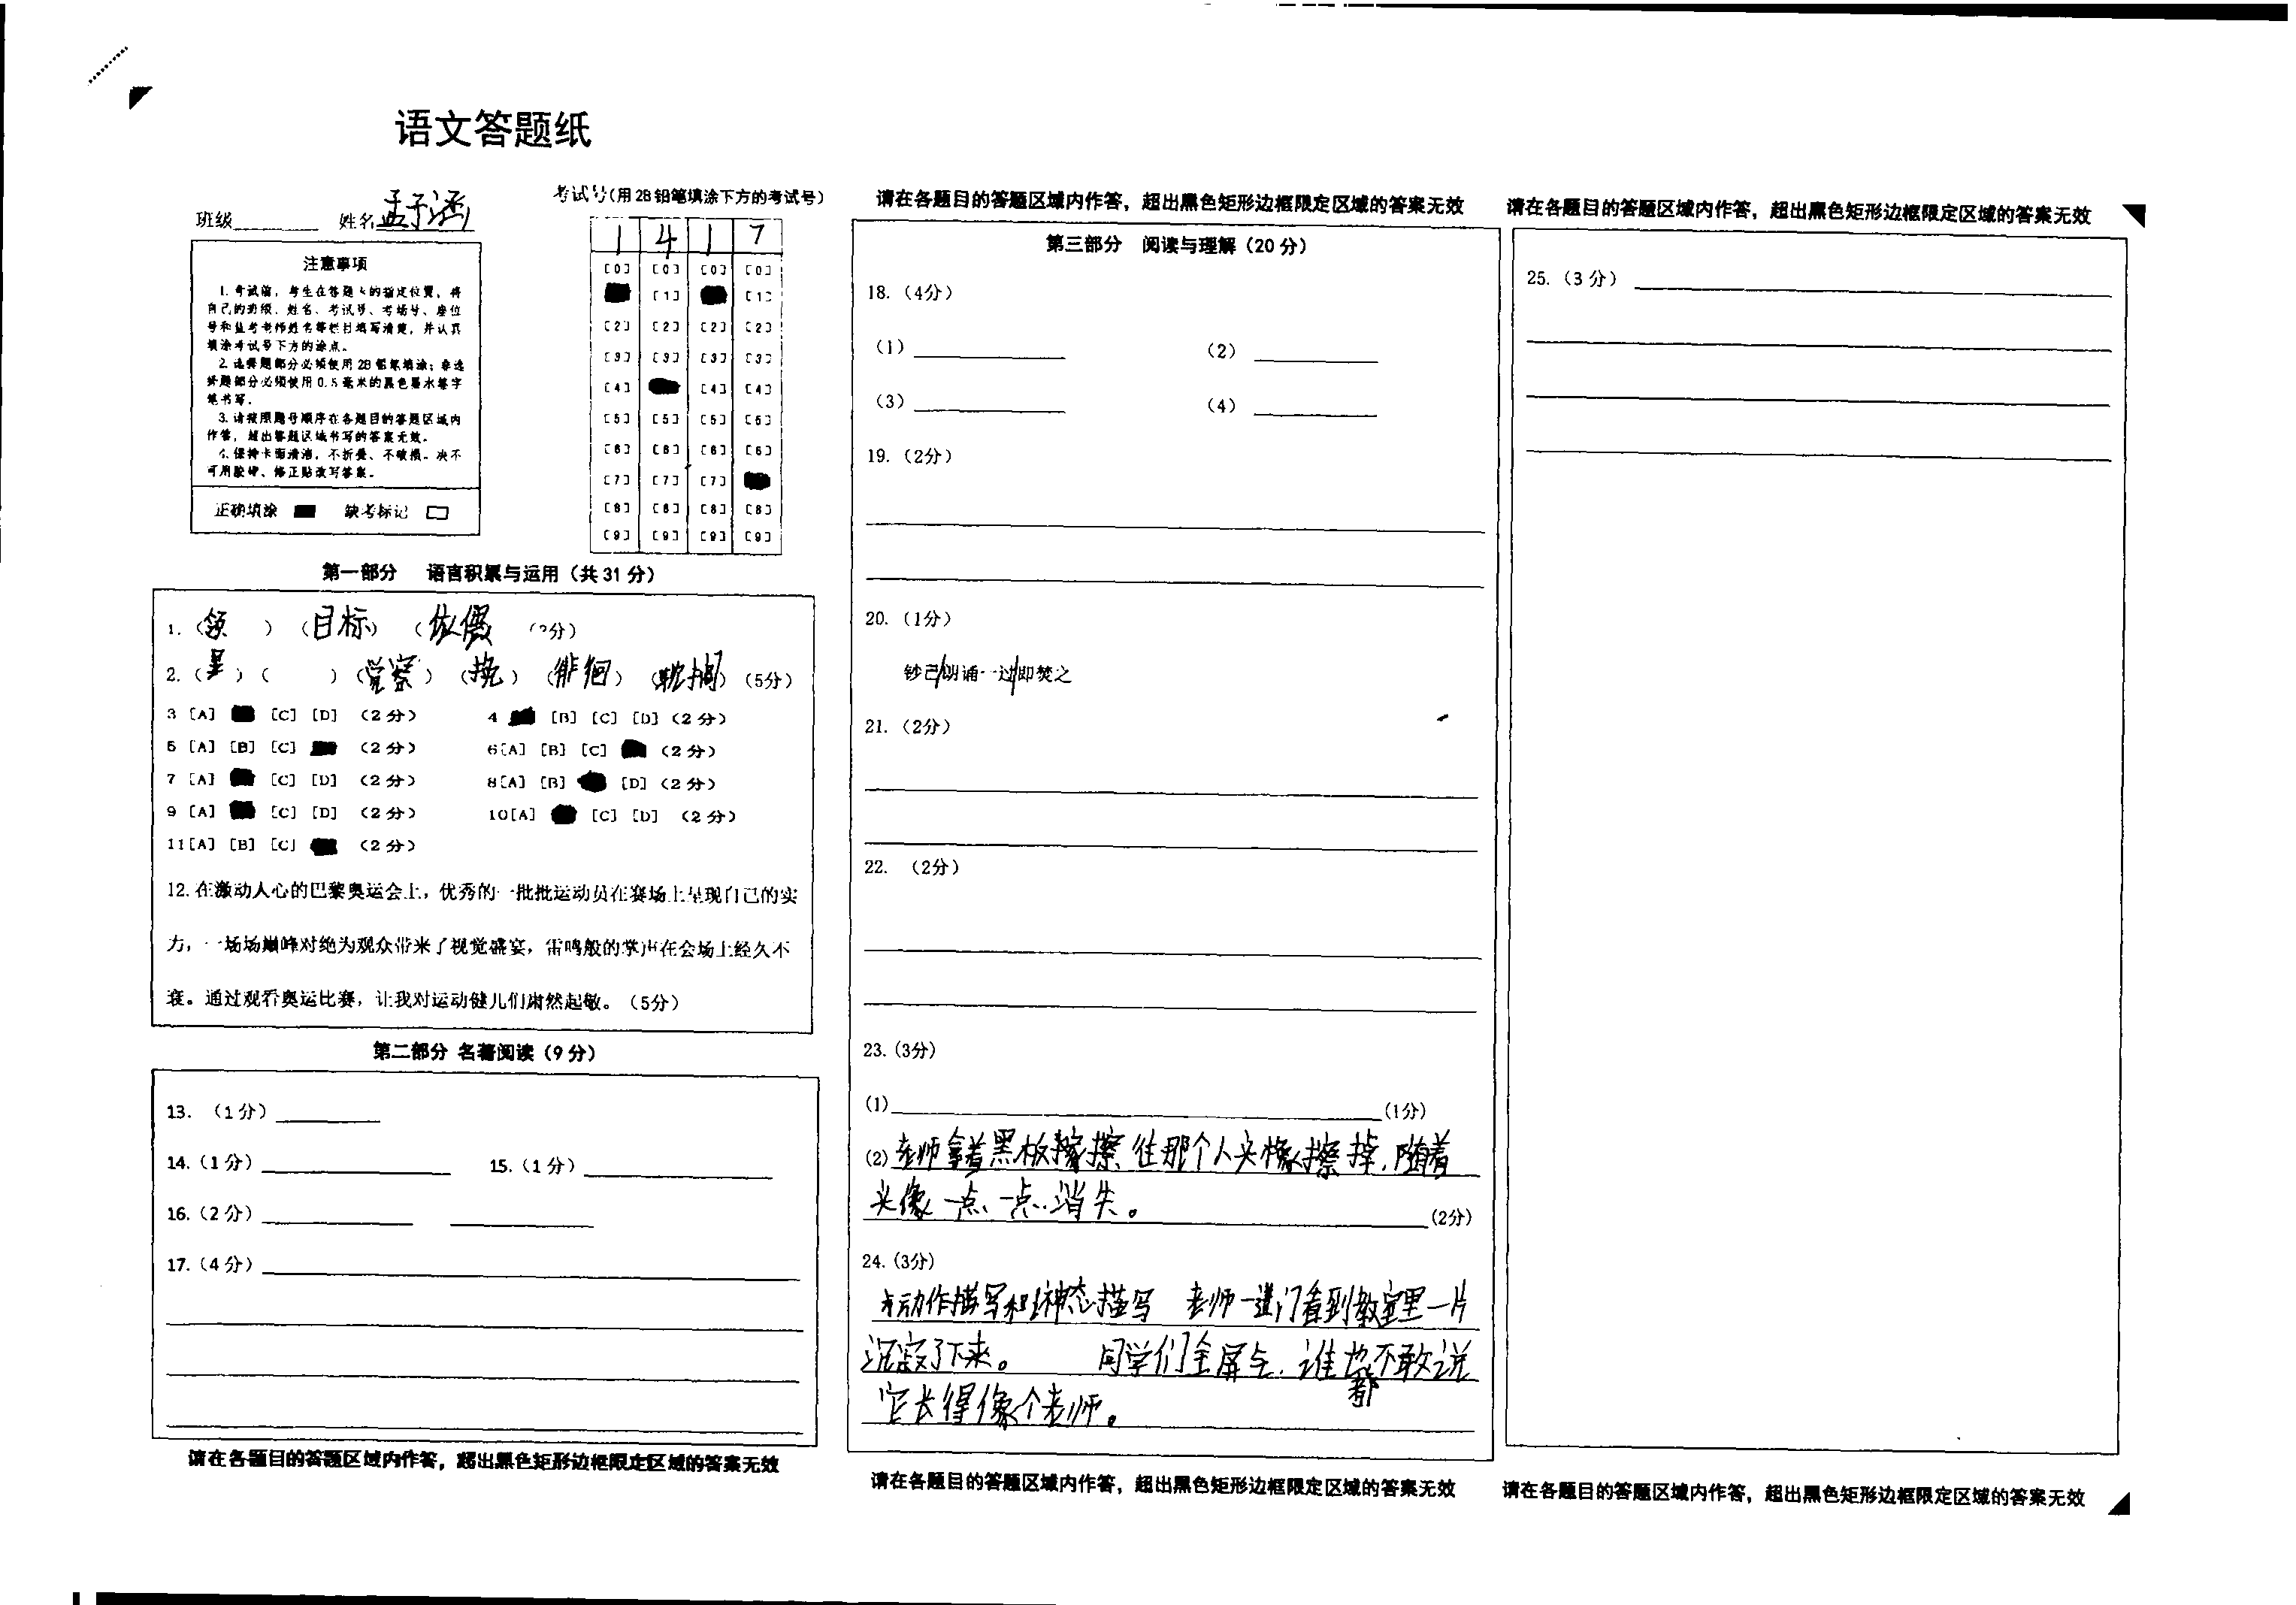 语文答题纸
班级 姓名 孟子涵
注意事项
1. 考试前，考生在答题卡的指定位置，将
自己的班级、姓名、考试号、考场号、座位
号和监考老师姓名等栏目填写清楚，并认真
填涂考试号下方的涂点。
2. 选择题部分必须使用 2B 铅笔填涂；非选
择题部分必须使用 0.5 毫米的黑色墨水签字
笔书写。
3. 请按照题号顺序在各题目的答题区域内
作答，超出答题区域书写的答案无效。
4. 保持卡面清洁，不折叠、不破损。决不
可用胶带、修正贴改写答案。
正确填涂 缺考标记
考试号(用 2B 铅笔填涂下方的考试号)
1 4 1 7
[0] [0] [0] [0]
[1] [1]
[2] [2] [2] [2]
[3] [3] [3] [3]
[4] [4] [4]
[5] [5] [5] [5]
[6] [6] [6] [6]
[7] [7] [7]
[8] [8] [8] [8]
[9] [9] [9] [9]
第一部分 语言积累与运用（共 31 分）
1.（领 ）（目标）（依偎 （2分）
2.（ ）（ ）（觉察）（挠）（徘徊）（耽搁）（5分）
3 [A] [C] [D] （2 分） 4 [B] [C] [D]（2 分）
5 [A] [B] [C] （2 分） 6[A] [B] [C] （2 分）
7 [A] [C] [D] （2 分） 8[A] [B] [D]（2 分）
9 [A] [C] [D] （2 分） 10[A] [C] [D] （2 分）
11[A] [B] [C] （2 分）
12. 在激动人心的巴黎奥运会上，优秀的一批批运动员在赛场上呈现自己的实
力，一场场巅峰对绝为观众带来了视觉盛宴，雷鸣般的掌声在会场上经久不
衰。通过观看奥运比赛，让我对运动健儿们肃然起敬。（5分）
第二部分 名著阅读（9 分）
13. （1 分）
14.（1 分） 15.（1 分）
16.（2 分）
17.（4 分）
请在各题目的答题区域内作答，超出黑色矩形边框限定区域的答案无效
请在各题目的答题区域内作答，超出黑色矩形边框限定区域的答案无效
第三部分 阅读与理解（20 分）
18.（4分）
（1） （2）
（3） （4）
19.（2分）
20.（1分）
钞己朗诵一过即焚之
21.（2分）
22. （2分）
23.（3分）
(1) (1分)
(2) 老师拿着黑板擦擦往那个人头像擦掉，随着
头像一点一点消失。 (2分)
24.（3分）
动作描写和神态描写 老师一进门看到教室里一片
沉寂了下来。 同学们全屏气，谁都不敢说
它长得像个老师。
请在各题目的答题区域内作答，超出黑色矩形边框限定区域的答案无效
请在各题目的答题区域内作答，超出黑色矩形边框限定区域的答案无效
25.（3 分）
请在各题目的答题区域内作答，超出黑色矩形边框限定区域的答案无效